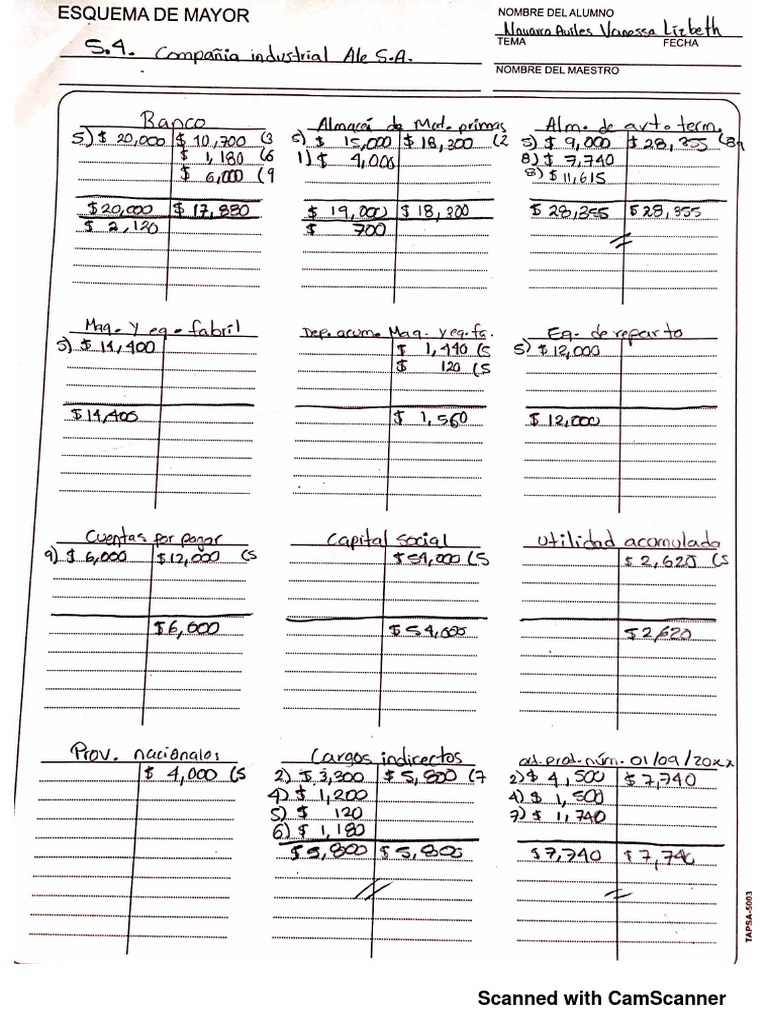 ESQUEMA DE MAYOR
NOMBRE DEL ALUMNO
Navarro Aviles Vanessa Lizbeth
TEMA FECHA
5.4. Compañia industrial Ale S.A.
NOMBRE DEL MAESTRO
Banco
5) $ 20,000 $ 10,700 (3
$ 1,180 (6
$ 6,000 (9
$20,000 $ 17,880
$ 2,120
Almacén de Mat. primas
$ 15,000 $ 18,300 (2
1) $ 4,000
$ 19,000 $ 18,300
$ 700
Alm. de art. term.
5) $ 9,000 $ 28,355 (8
8) $ 7,740
8) $ 11,615
$ 28,355 $ 28,355
Maq. y eq. fabril
5) $ 14,400
$ 14,400
Dep. acum. Maq. y eq. fa.
$ 1,440 (5
$ 120 (5
$ 1,560
Eq. de reparto
5) $ 12,000
$ 12,000
Cuentas por pagar
9) $ 6,000 $ 12,000 (5
$6,000
Capital social
$ 54,000 (5
$ 54,000
Utilidad acumulada
$ 2,620 (5
$ 2,620
Prov. nacionales
$ 4,000 (5
Cargos indirectos
2) $ 3,300 $ 5,800 (7
4) $ 1,200
5) $ 120
6) $ 1,180
$ 5,800 $ 5,800
od. prod. núm. 01/09/20xx
2) $ 4,500 $ 7,740
4) $ 1,500
7) $ 1,740
$ 7,740 $ 7,740
TAPSA-5003
Scanned with CamScanner